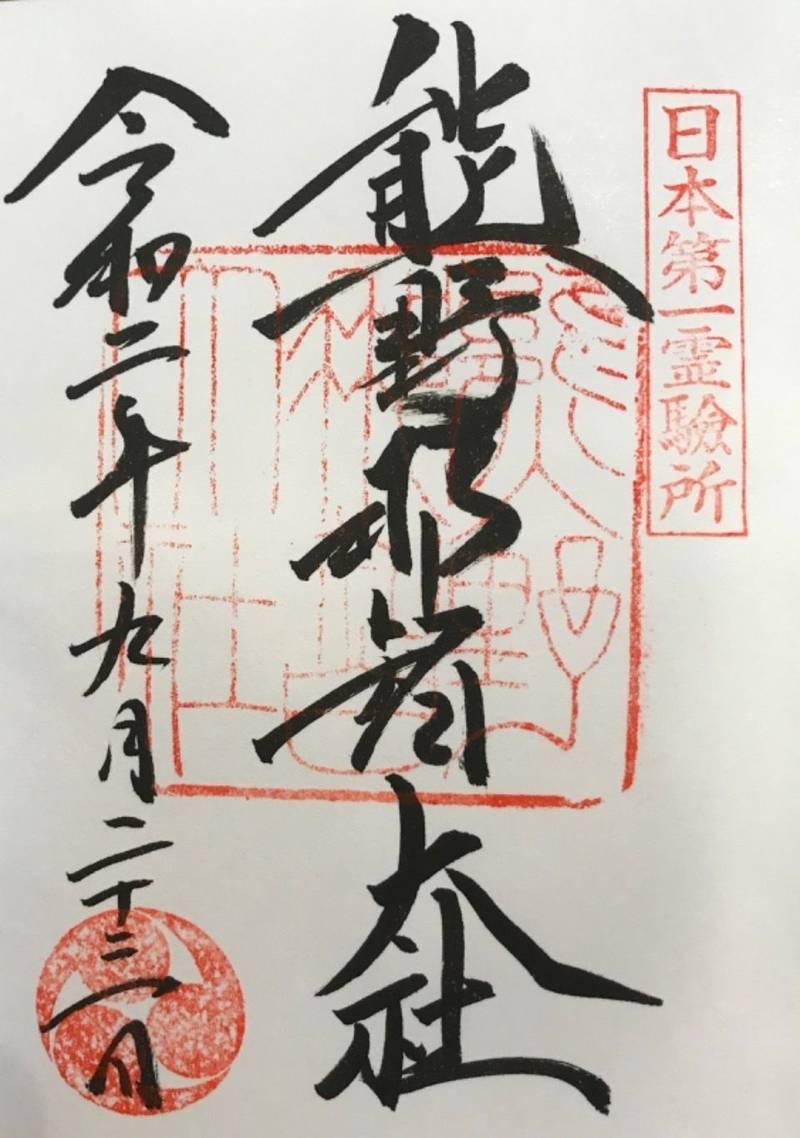 日本第一霊驗所
熊野那智大社
令和二年九月二十三日